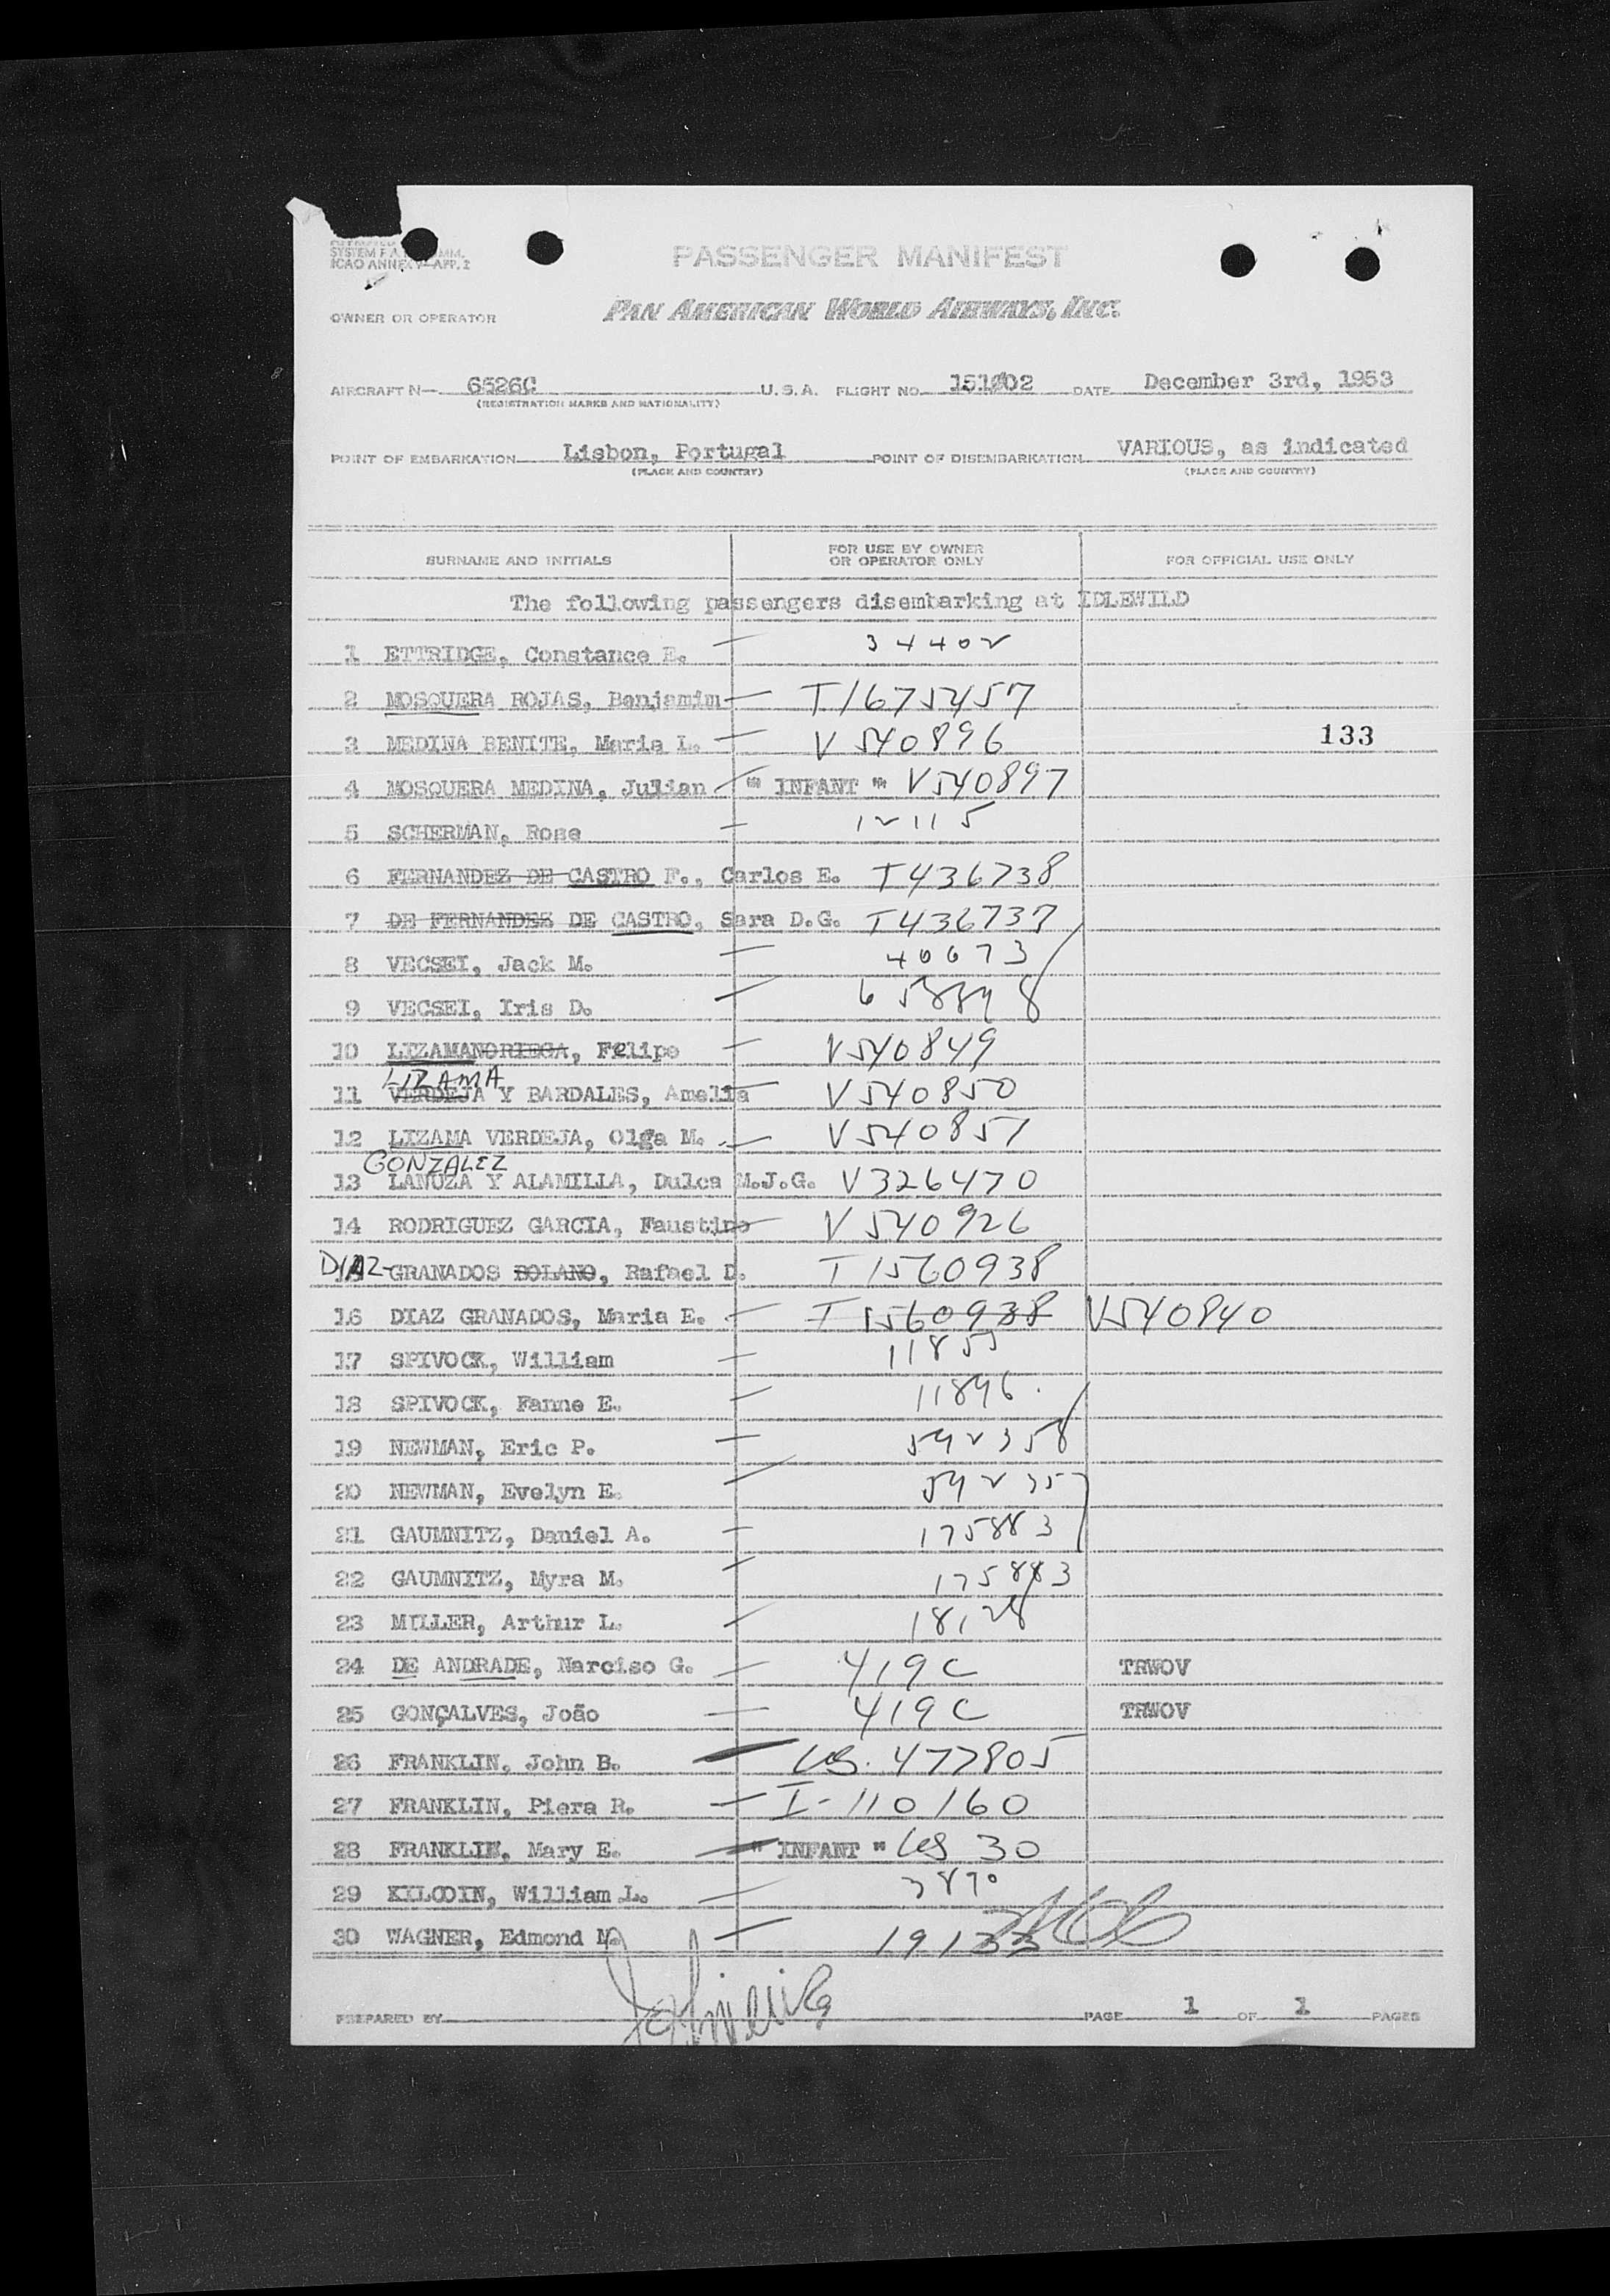 SYSTEM F.A. COMM.
ICAO ANNEX 9-APP. 2
PASSENGER MANIFEST
OWNER OR OPERATOR PAN AMERICAN WORLD AIRWAYS, INC.
AIRCRAFT N- 6526C U.S.A. FLIGHT NO. 151/02 DATE December 3rd, 1953
(REGISTRATION MARKS AND NATIONALITY)
POINT OF EMBARKATION Lisbon, Portugal POINT OF DISEMBARKATION VARIOUS, as indicated
(PLACE AND COUNTRY) (PLACE AND COUNTRY)
SURNAME AND INITIALS FOR USE BY OWNER OR OPERATOR ONLY FOR OFFICIAL USE ONLY
The following passengers disembarking at IDLEWILD
1 ETTRIDGE, Constance E. — 34402
2 MOSQUERA ROJAS, Benjamim — T1675457
3 MEDINA BENITE, Maria L. — V540896 133
4 MOSQUERA MEDINA, Julian — " INFANT " V540897
5 SCHERMAN, Rose — 12115
6 FERNANDEZ DE CASTRO F., Carlos E. T436738
7 DE FERNANDES DE CASTRO, Sara D.G. T436737
8 VECSEI, Jack M. — 40673
9 VECSEI, Iris D. — 658898
10 LIZAMANORIEGA, Felipe — V540849
LIZAMA
11 VERDEJA Y BARDALES, Amelia — V540850
12 LIZAMA VERDEJA, Olga M. — V540851
GONZALEZ
13 LANUZA Y ALAMILLA, Dulca M.J.G. V326470
14 RODRIGUEZ GARCIA, Faustino — V540926
DIAZ- GRANADOS BOLANO, Rafael D. T1560938
16 DIAZ GRANADOS, Maria E. — T1560938 V540840
17 SPIVOCK, William — 11855
18 SPIVOCK, Fanne E. — 11896
19 NEWMAN, Eric P. — 592358
20 NEWMAN, Evelyn E. — 592357
21 GAUMNITZ, Daniel A. — 175883
22 GAUMNITZ, Myra M. — 175883
23 MILLER, Arthur L. — 18128
24 DE ANDRADE, Narciso G. — 419C TRWOV
25 GONÇALVES, João — 419C TRWOV
26 FRANKLIN, John B. — US. 477805
27 FRANKLIN, Piera R. — I-110160
28 FRANKLIN, Mary E. — " INFANT " US 30
29 KILCOIN, William L. — 3870
30 WAGNER, Edmond M. — 19133
PREPARED BY PAGE 1 OF 1 PAGES